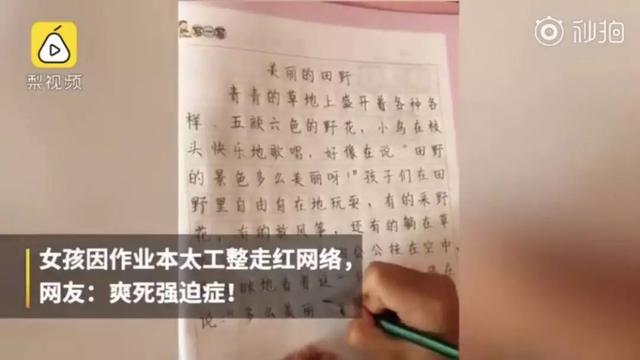 梨视频
秒拍
写一写
美丽的田野
青青的草地上盛开着各种各
样、五颜六色的野花，小鸟在枝
头快乐地歌唱，好像在说“田野
的景色多么美丽呀！”孩子们在田
野里自由自在地玩耍，有的采野
花，有的放风筝，还有的躺在草
公公挂在空中，
地看着这
说：“多么美丽
女孩因作业本太工整走红网络，
网友：爽死强迫症！